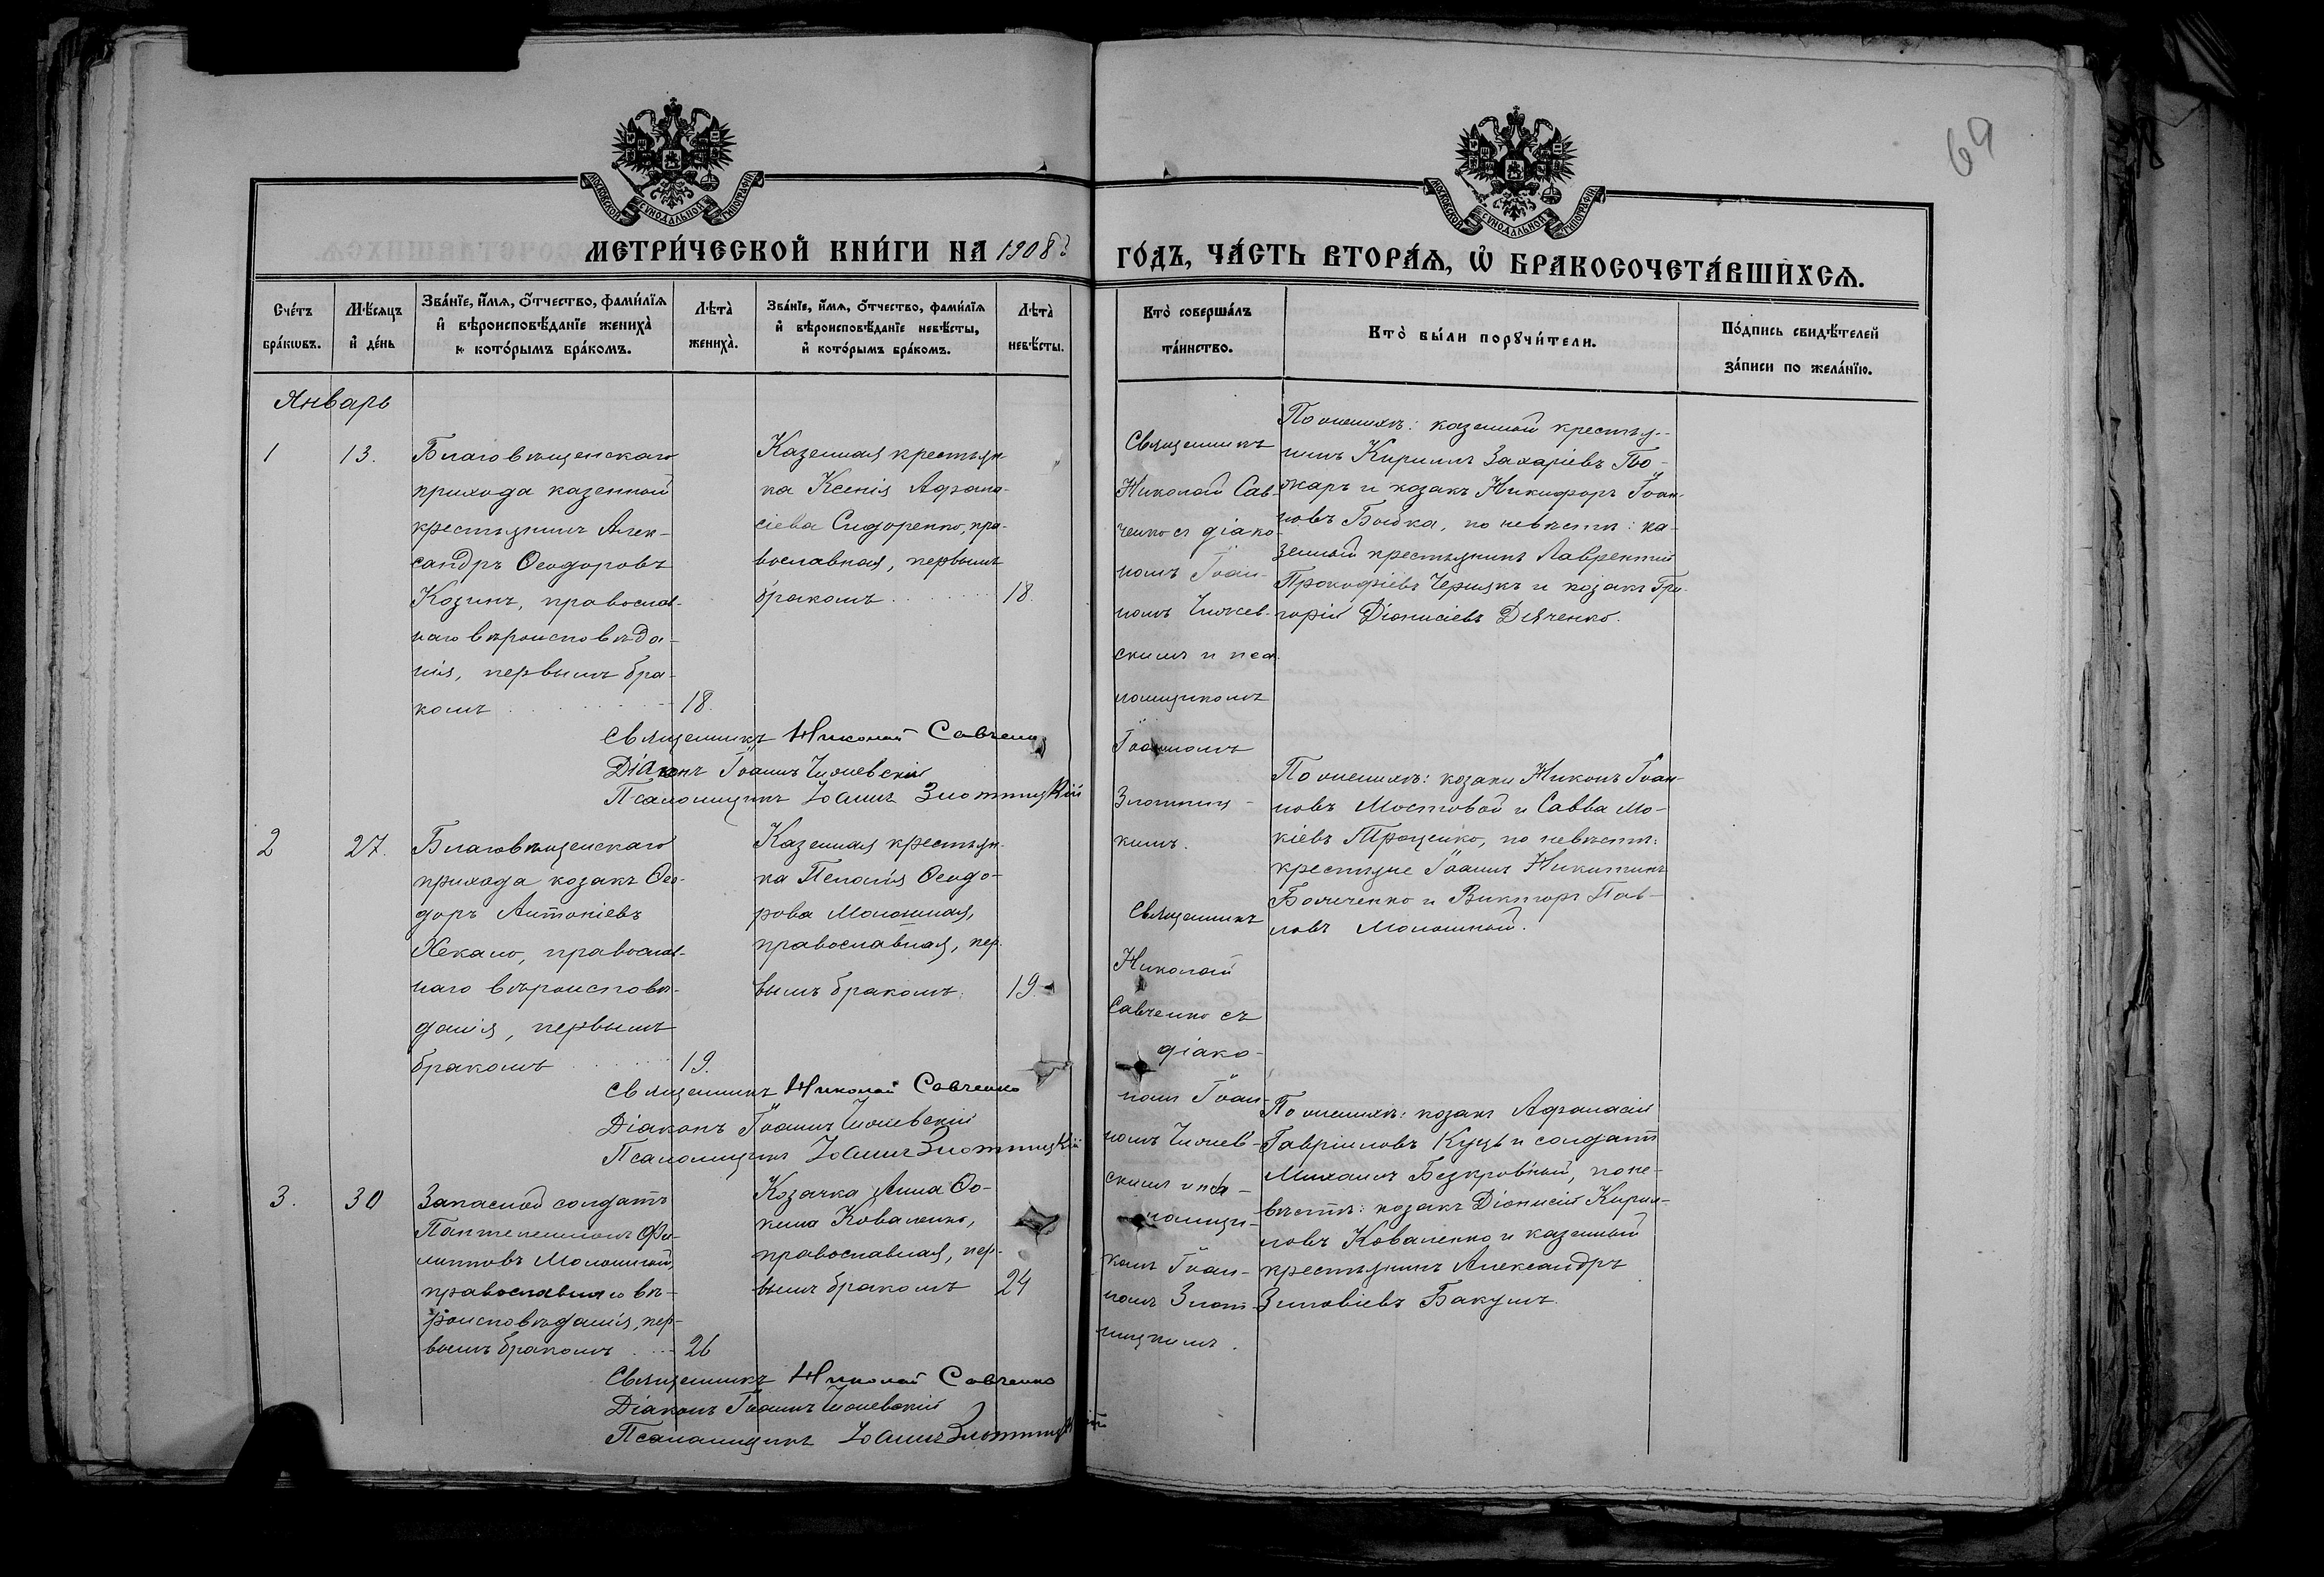 69
МОСКОВСКОЙ СУНОДАЛЬНОЙ ТИПОГРАФІИ
МОСКОВСКОЙ СУНОДАЛЬНОЙ ТИПОГРАФІИ
МЕТРИ́ЧЕСКОЙ КНИ́ГИ НА 1908
ГО́ДЪ, ЧА́СТЬ ВТОРА́Ѧ, Ѽ БРАКОСОЧЕТА́ВШИХСѦ.
Сче́тъ
бра́кѡвъ.
Мѣ́сѧцъ
и҆ де́нь
Зва́нїе, и҆́мѧ, ѻ҆́тчество, фами́лїѧ
и҆ вѣроисповѣ́данїе жениха̀
и҆ кото́рымъ бра́комъ.
Лѣта̀
жениха̀.
Зва́нїе, и҆́мѧ, ѻ҆́тчество, фами́лїѧ
и҆ вѣроисповѣ́данїе невѣ́сты,
и҆ кото́рымъ бра́комъ.
Лѣта̀
невѣ́сты.
Кто̀ соверша́лъ
та́инство.
Кто̀ бы́ли порꙋчи́тели.
По́дпись свидѣ́телей
за́писи по жела́нїю.
Январь
1
13.
Благовѣщенскаго
прихода казенной
крестьянинъ Алек-
сандръ Ѳеодоровъ
Козинъ, православ-
наго вѣроисповѣда-
нія, первымъ бра-
комъ
18.
Казенная крестьян
ка Ксенія Афана-
сіева Сидоренко, пра-
вославная, первымъ
бракомъ
18.
Священникъ
Николай Сав-
ченко съ діако-
номъ Іоан-
номъ
скимъ и пса
ломщикомъ
Іоанномъ
Злотниц-
кимъ.
По женихѣ: казенной крестья-
нинъ Кириллъ Захаріевъ По-
жаръ и козакъ Никифоръ Іоан-
новъ Бойка, по невѣстѣ: ка-
зенный крестьянинъ Лаврентій
Прокофіевъ Чернякъ и козакъ Гри-
горій Діонисіевъ Дяченко.
Священникъ Николай Савченко
Діаконъ Іоаннъ
Псаломщикъ Іоаннъ Злотницкій
2
27.
Благовѣщенскаго
прихода козакъ Ѳео-
доръ Антоніевъ
Хекало, православ-
наго вѣроисповѣ-
данія, первымъ
бракомъ
19.
Казенная крестьян-
ка Пелагія Ѳеодо-
рова Молошная,
православная, пер-
вымъ бракомъ.
19.
Священникъ
Николай
Савченко съ
діако-
номъ Іоан-
номъ
скимъ и пса-
ломщи-
комъ Іоан-
номъ Злот-
ницкимъ.
По женихѣ: козаки Никонъ Іоан-
новъ Мостовой и Савва Мо-
кіевъ Троценко, по невѣстѣ:
крестьяне Іоаннъ Никитинъ
и Викторъ Пав-
ловъ Молошный.
Священникъ Николай Савченко
Діаконъ Іоаннъ
Псаломщикъ Іоаннъ Злотницкій
3.
30
Запасной солдатъ
Пантелеимонъ Фи-
липповъ Молошный,
православнаго вѣ-
роисповѣданія, пер-
вымъ бракомъ
26
Козачка Анна Ѳо-
мина Коваленко,
православная, пер-
вымъ бракомъ
24
По женихѣ: козакъ Афанасій
Гавріиловъ Куць и солдатъ
Михаилъ Безкровный, по не-
вѣстѣ: козакъ Діонисій Кирил-
ловъ Коваленко и казенный
крестьянинъ Александръ
Зиновіевъ Бакумъ.
Священникъ Николай Савченко
Діаконъ Іоаннъ
Псаломщикъ Іоаннъ Злотницкій